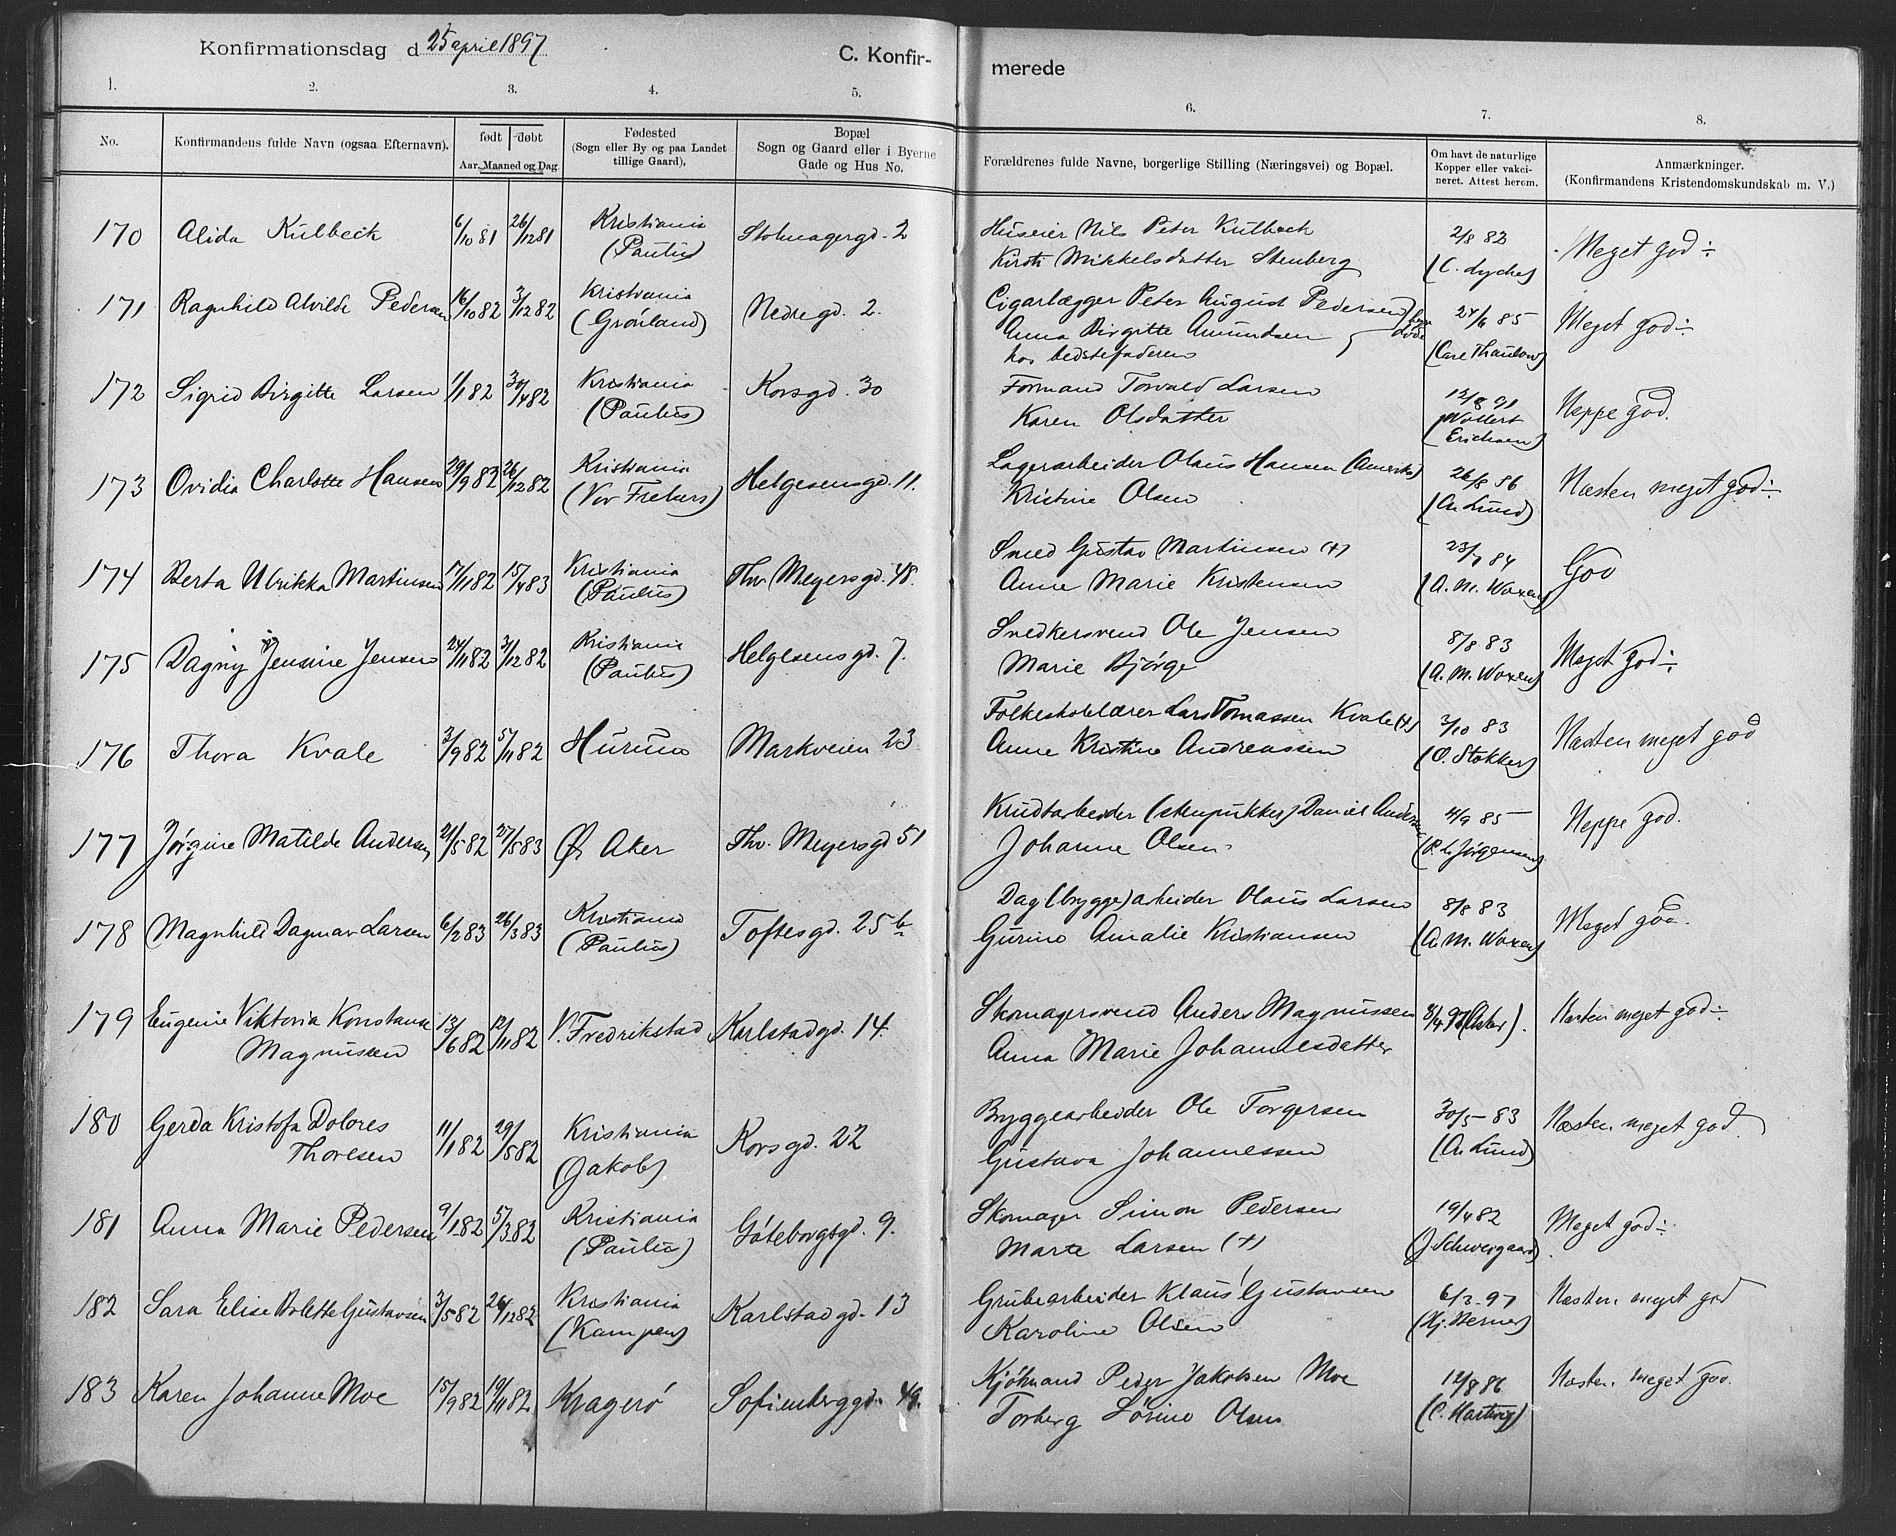 Konfirmationsdag d. 25 april 1897
C. Konfir-
merede
1. 2. 3. 4. 5. 6. 7. 8.
No.
Konfirmandens fulde Navn (ogsaa Efternavn).
født døbt
Aar, Maaned og Dag.
Fødested
(Sogn eller By og paa Landet
tillige Gaard).
Bopæl
Sogn og Gaard eller i Byerne
Gade og Hus No.
Forældrenes fulde Navne, borgerlige Stilling (Næringsvei) og Bopæl.
Om havt de naturlige
Kopper eller vakci-
neret. Attest herom.
Anmærkninger.
(Konfirmandens Kristendomskundskab m. V.)
170 Alida Kulbeck 6/10 81 26/12 81 Kristiania (Paulus) Stolmagergd. 2
Huseier Nils Peter Kulbeck 2/8 82 Meget god ÷
Kirsti Mikkelsdatter Stenberg (C. Lyche)
171 Ragnhild Alvilde Pedersen 16/10 82 3/12 82 Kristiania (Grønland) Nedregd. 2.
Cigarlægger Peter August Pedersen 24/6 85 Meget god ÷
Anna Birgitte Amundsen (Carl Thaulow)
hos bedstefaderen
172 Sigrid Birgitte Larsen 1/1 82 30/4 82 Kristiania (Paulus) Korsgd. 30
Formand Torvald Larsen 12/8 91 Neppe god.
Karen Olsdatter (Wollert Erichsen)
173 Ovidia Charlotte Hansen 29/9 82 26/12 82 Kristiania (Vor Frelsers) Helgesensgd. 11.
Lagerarbeider Olaus Hansen (Amerika) 26/8 86 Næsten meget god ÷
Kristine Olsen (A. Lund)
174 Berta Ulrikka Martinsen 17/11 82 15/4 83 Kristiania (Paulus) Thv. Meyersgd. 48.
Smed Gustav Martinsen (+) 23/7 84 God
Anne Marie Kristensen (A. M. Woxen)
175 Dagny Jensine Jensen 24/11 82 3/12 82 Kristiania (Paulus) Helgesensgd. 7.
Snedkersvend Ole Jensen 8/8 83 Meget god ÷
Marie Bjørge (A. M. Woxen)
176 Thora Kvale 3/9 82 5/11 82 Hurum Markveien 23
Folkeskolelærer Lars Tomassen Kvale (+) 3/10 83 Næsten meget god
Anne Kristine Andreassen (O. Stokker)
177 Jørgine Matilde Andersen 21/5 82 27/5 83 Ø. Aker Thv. Meyersgd 51
Krudtarbeider (stenpukker) Daniel Andersen 4/9 85 Neppe god.
Johanne Olsen (P. L. Jørgensen)
178 Magnhild Dagmar Larsen 6/2 83 26/3 83 Kristiania (Paulus) Toftesgd. 25 b
Dag (brygge) arbeider Olaus Larsen 8/8 83 Meget god.
Gurine Amalie Kristiansen (A. M. Woxen)
179 Eugenie Viktoria Konstanse Magnussen 13/6 82 12/11 82 V. Fredrikstad Karlstadgd. 14.
Skomagersvend Anders Magnussen 8/4 97 Næsten meget god ÷
Anna Marie Johannesdatter
180 Gerda Kristofa Dolores Thoresen 11/1 82 29/5 82 Kristiania (Jakob) Korsgd. 22
Bryggearbeider Ole Torgersen 30/5 83 Næsten meget god
Gustava Johannessen (A. Lund)
181 Anna Marie Pedersen 9/1 82 5/3 82 Kristiania (Paulus) Göteborgsgd. 9.
Skomager Simon Pedersen 19/4 82 Meget god ÷
Marte Larsen (+) (J. Schweigaard)
182 Sara Elise Bolette Gustavsen 3/5 82 26/12 82 Kristiania (Kampen) Karlstadgd. 13
Grubearbeider Klaus Gustavsen 6/3 97 Næsten meget god
Karoline Olsen (Hj. Berner)
183 Karen Johanne Moe 15/9 82 19/11 82 Kragerö Sofienberggd. 49.
Kjöbmand Peder Jakobsen Moe 12/8 86 Næsten meget god.
Torberg Sörine Olsen (C. Hartvig)